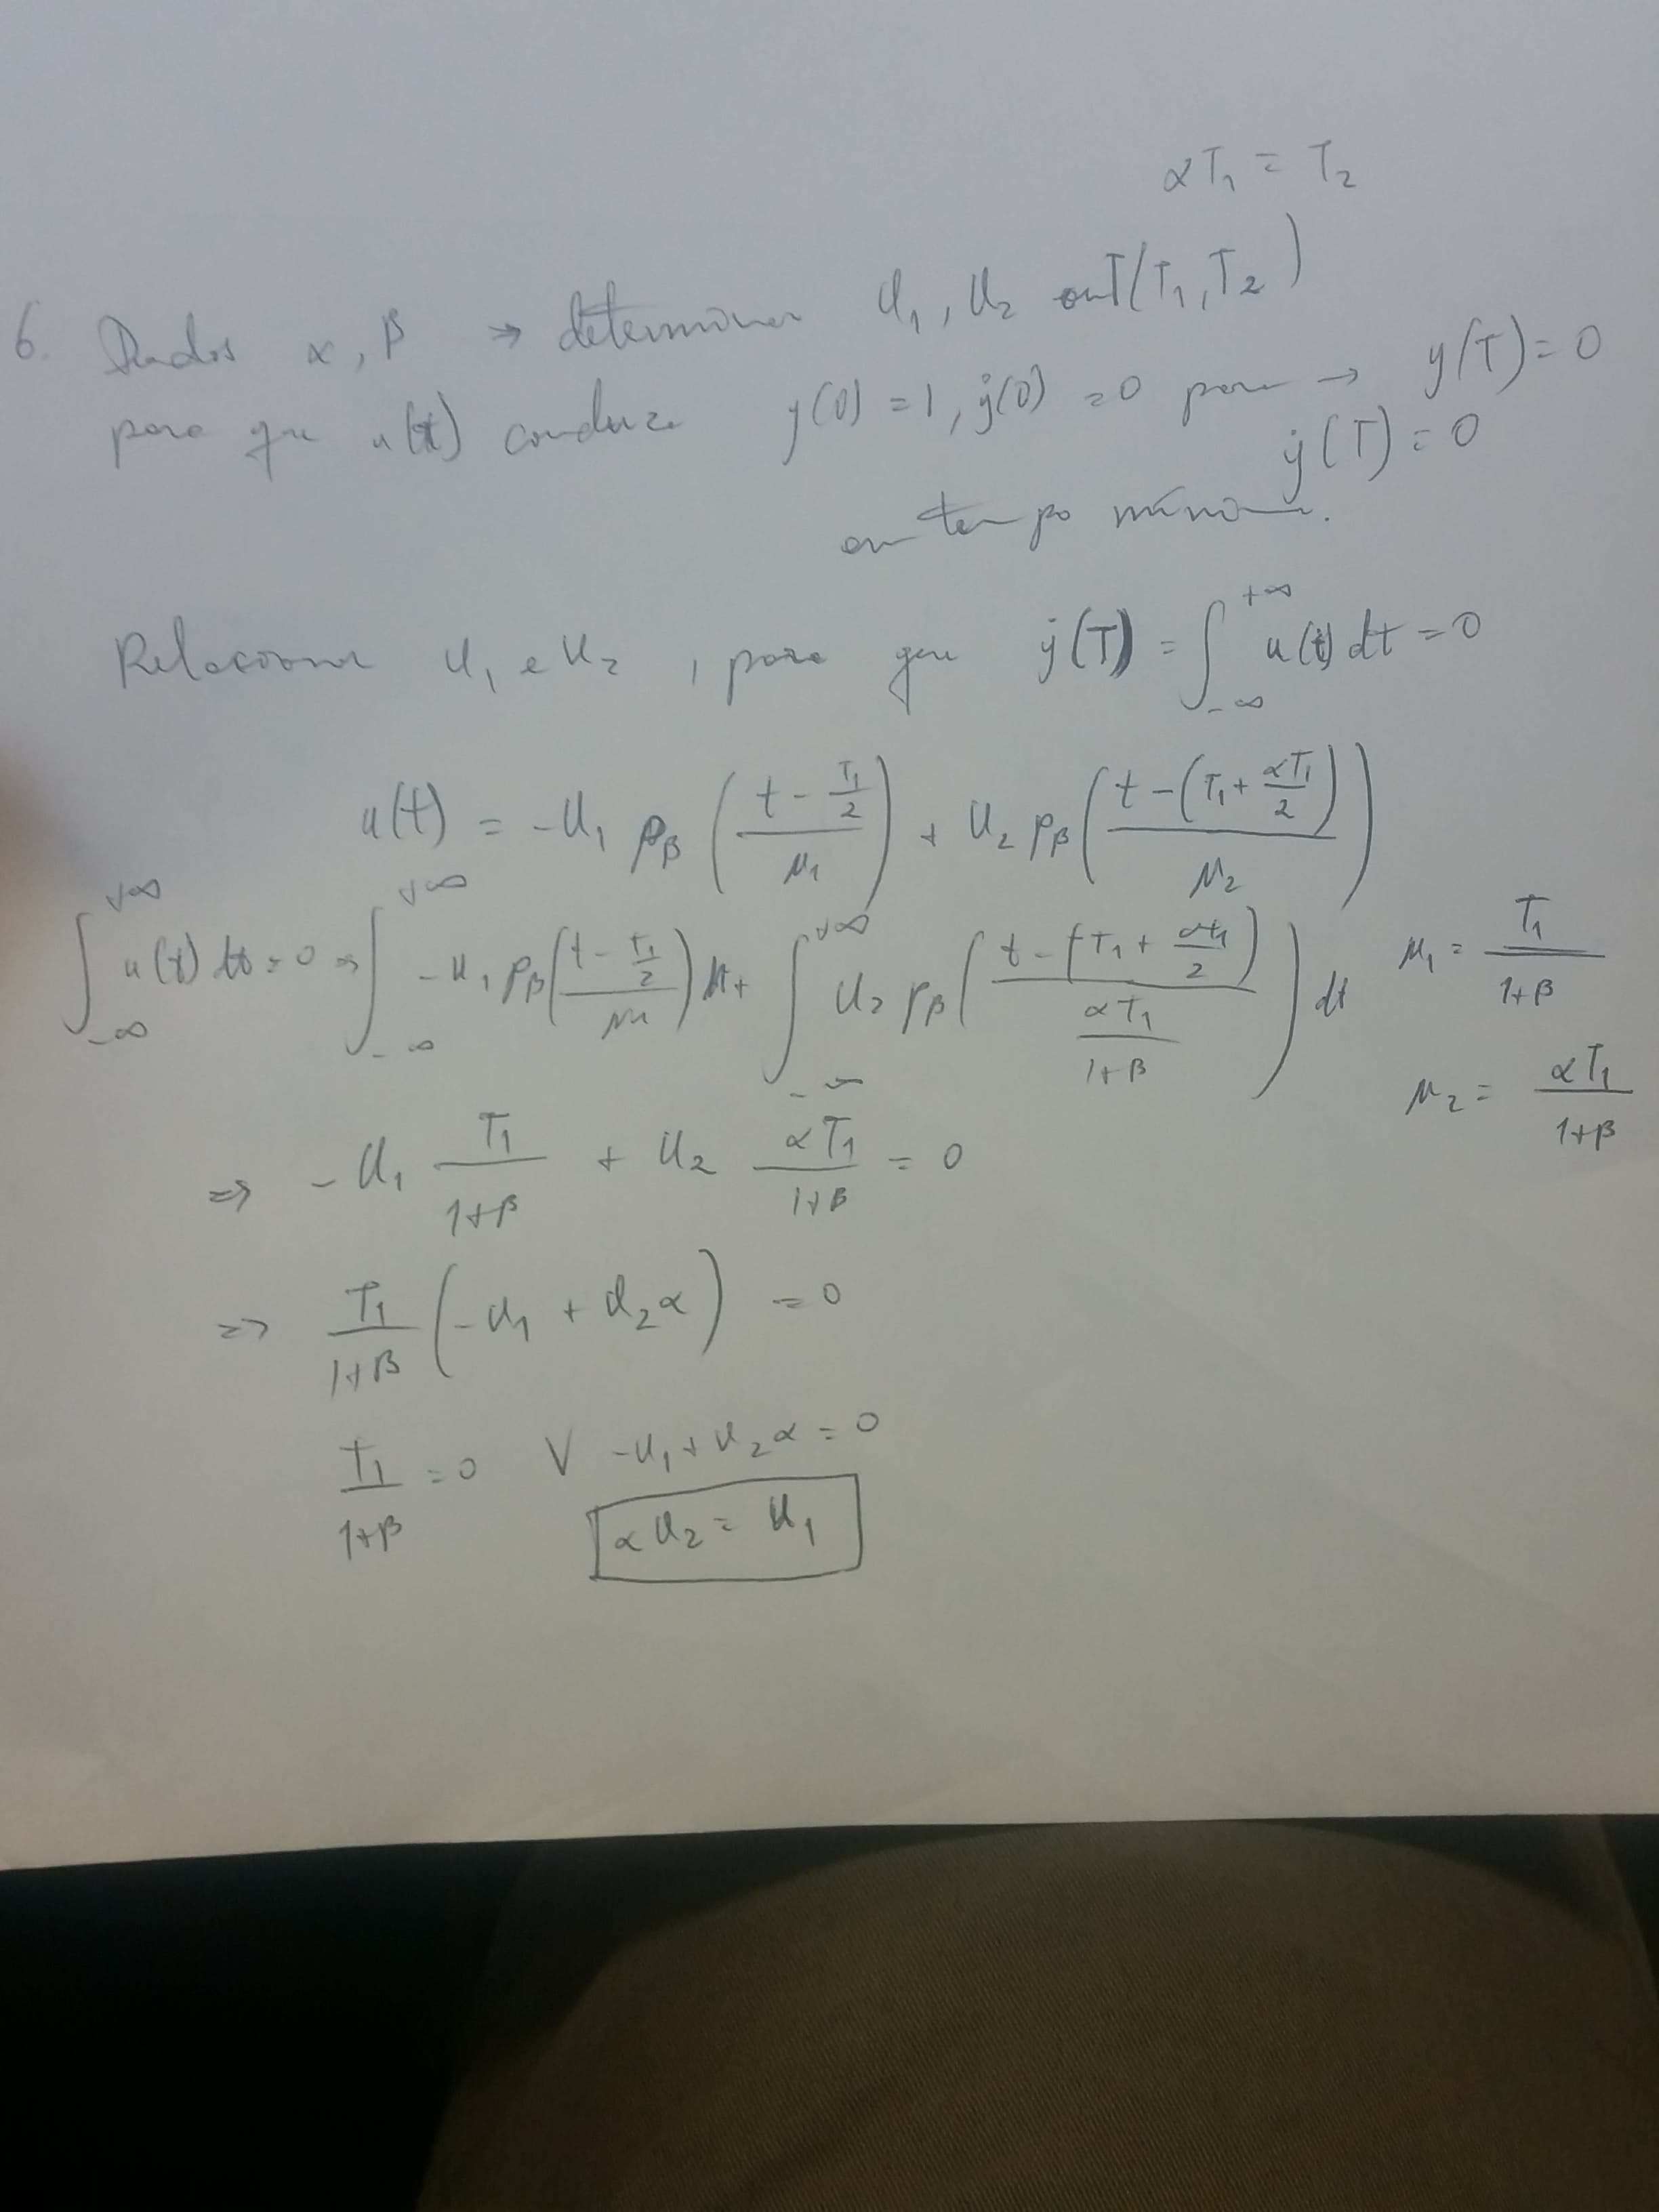 αT₁ = T₂
6. Dados α, β → determinar U₁, U₂ out(T₁, T₂)
para que u(t) conduza y(0) = 1, ẏ(0) = 0 para → y(T) = 0
ẏ(T) = 0
em tempo mínimo.
Relacionar U₁ e U₂, para que ẏ(T) = ∫_{-∞}^{+∞} u(t) dt = 0
u(t) = -U₁ p_β ((t - T₁/2)/μ₁) + U₂ p_β ((t - (T₁ + αT₁/2))/μ₂)
∫_{-∞}^{+∞} u(t) dt = 0 ⇒ ∫_{-∞}^{+∞} -U₁ p_β ((t - T₁/2)/μ₁) dt + ∫_{-∞}^{+∞} U₂ p_β ((t - (T₁ + αT₁/2))/(αT₁/(1+β))) dt
μ₁ = T₁/(1+β)
μ₂ = αT₁/(1+β)
⇒ -U₁ T₁/(1+β) + U₂ αT₁/(1+β) = 0
⇒ T₁/(1+β) (-U₁ + U₂α) = 0
T₁/(1+β) = 0 ∨ -U₁ + U₂α = 0
αU₂ = U₁